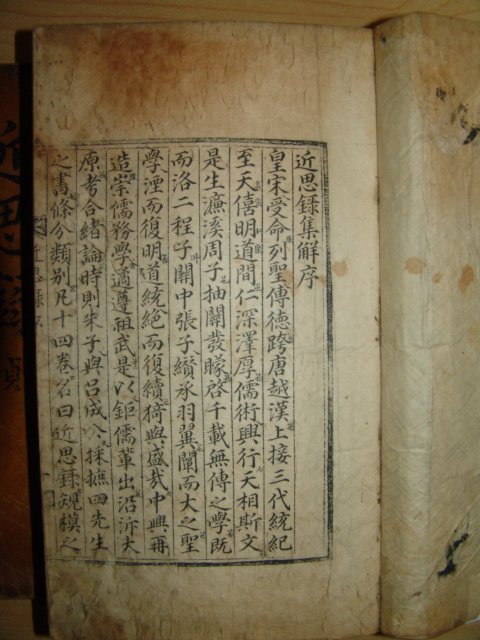 近思録集解序
皇宋受命列聖傳德跨唐越漢上接三代統紀
至天僖明道間仁深澤厚儒術興行天相斯文
是生濂溪周子抽關發矇啓千載無傳之學既
而洛二程子關中張子纘承羽翼闡而大之聖
學湮而復明道統絶而復續猗與盛哉中興再
造崇儒務學遹遵祖武是以鉅儒輩出沿泝大
原考合緒論時則朱子與呂成公採摭四先生
之書條分類別凡十四卷名曰近思録規模之
近思録
近思